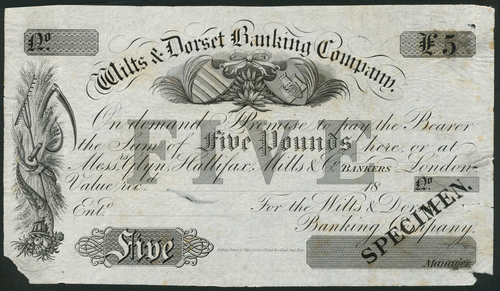 No. £5
Wilts & Dorset Banking Company.
On demand Promise to pay the Bearer
the Sum of Five Pounds here, or at
Messrs Glyn, Hallifax, Mills & Co. BANKERS London
Value recd. 18 No.
FIVE
Entd. For the Wilts & Dorset
Banking Company.
SPECIMEN.
Five
Manager